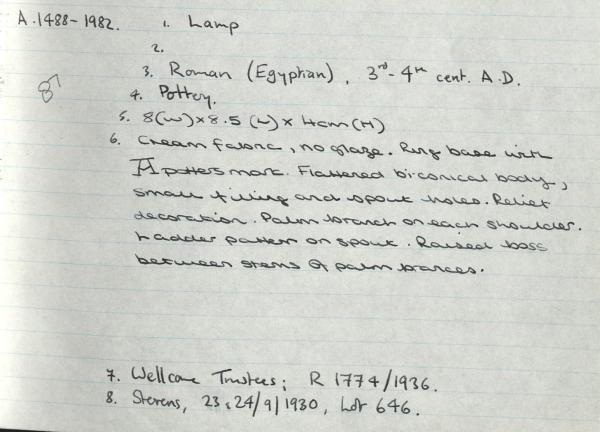 A.1488-1982. 1. Lamp
2.
3. Roman (Egyptian), 3rd-4th cent. A.D.
87
4. Pottery.
5. 8(W)x8.5 (L) x 4cm(H)
6. Cream fabric, no glaze. Ring base with
potters mark. Flattened bi-conical body,
small filling and spout holes. Relief
decoration. Palm branch on each shoulder.
Ladder pattern on spout. Raised boss
between stems of palm brances.
7. Wellcome Trustees; R 1774/1936.
8. Stevens, 23 & 24/9/1930, Lot 646.